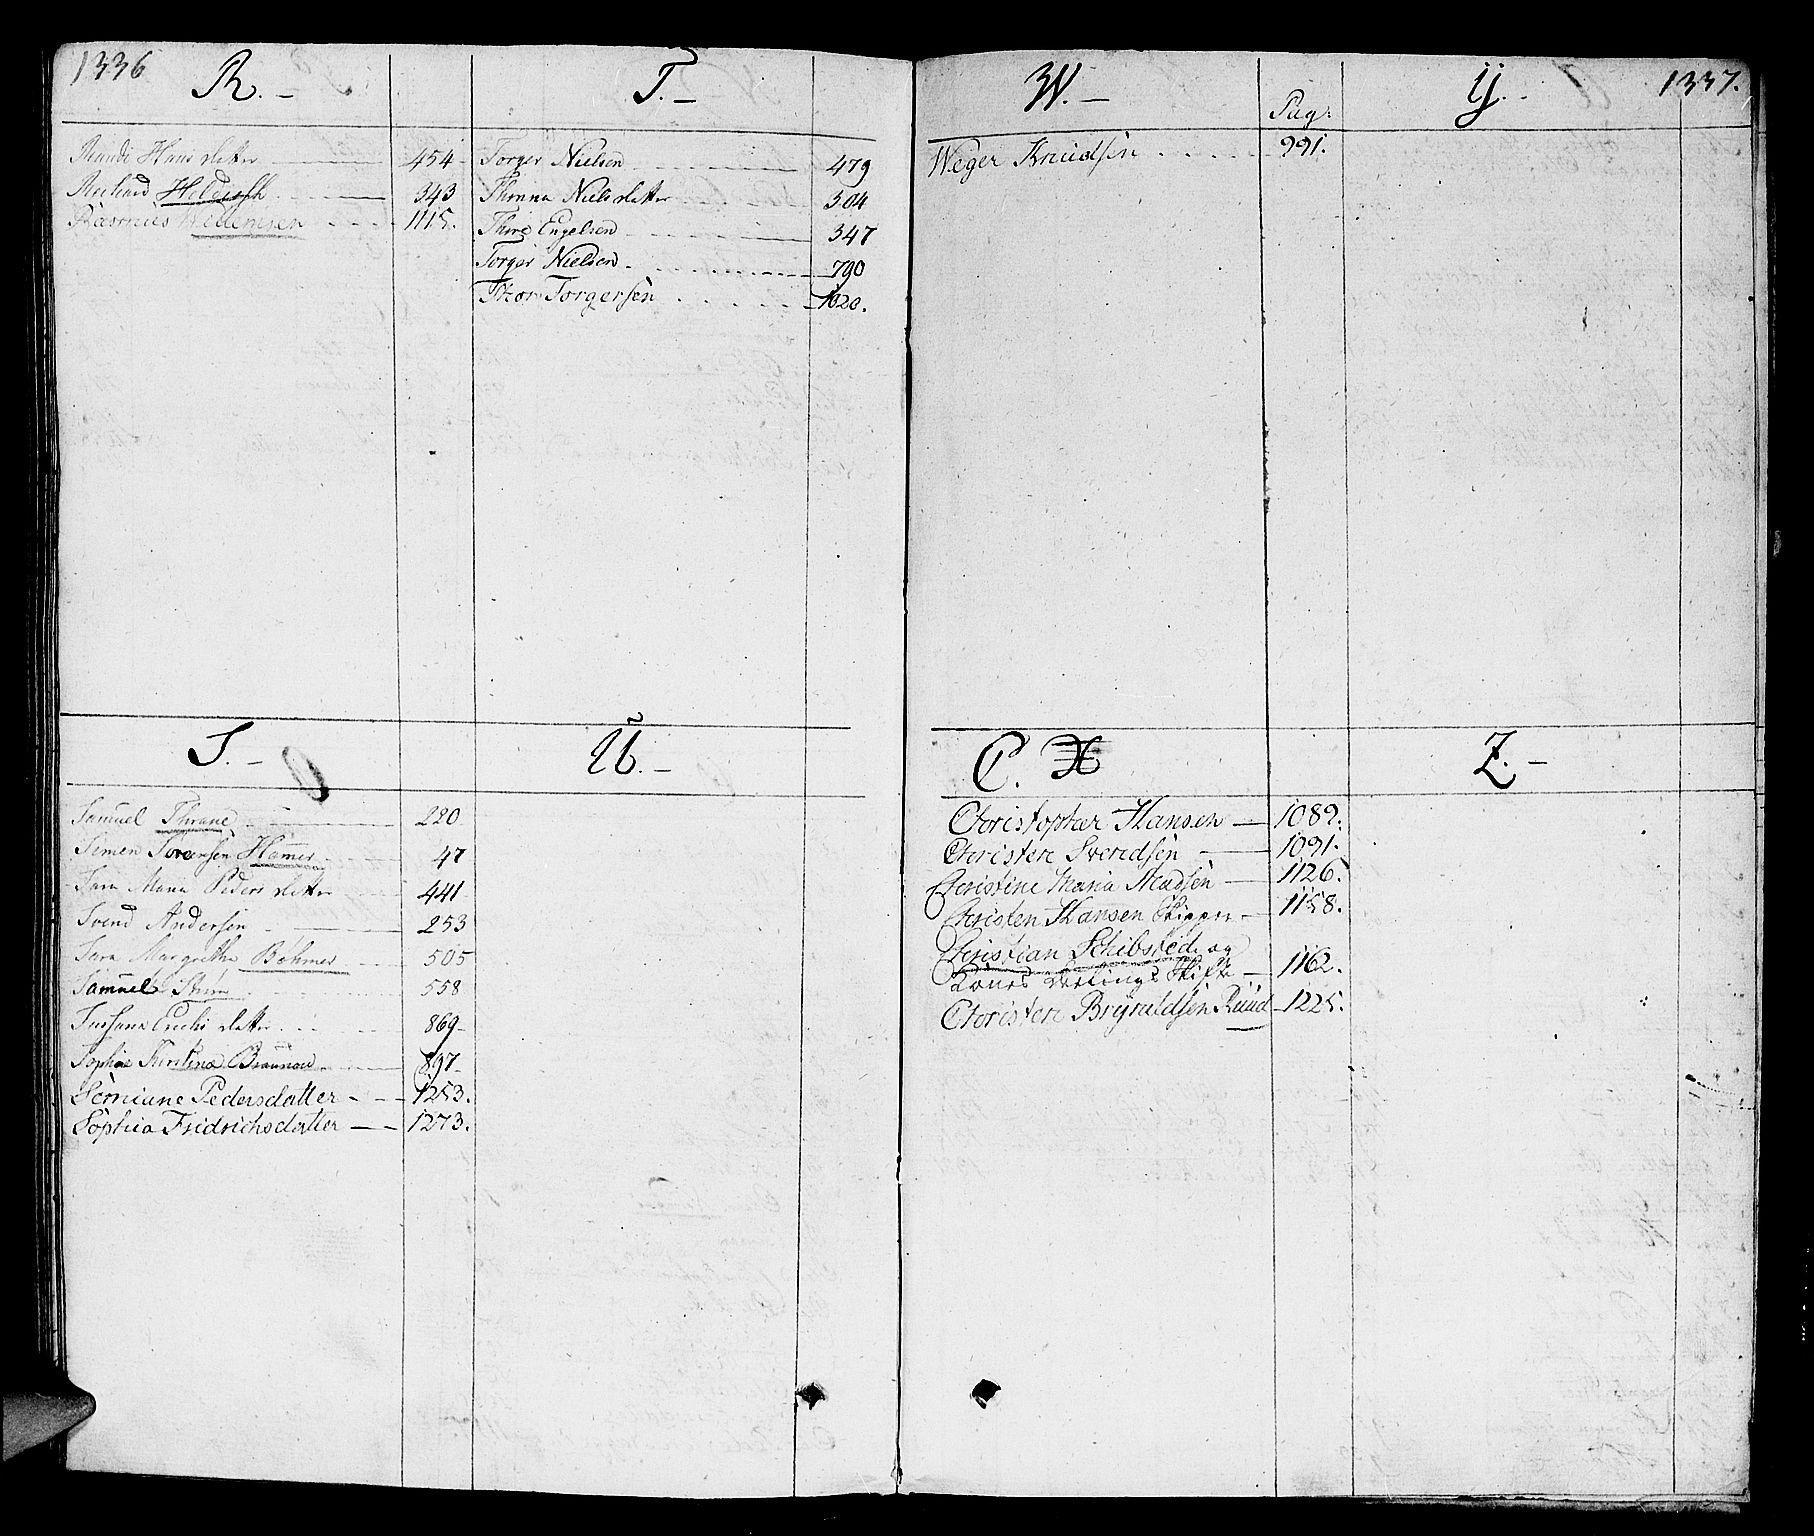 1336
R. –
Randi Hans datter 454
Richard Hilditsch 343
Rasmus Willumsen 1115.
T. –
Torger Nielsen 479
Thrina Nielsdatter 304
Thire Engelsen 347
Torger Nielsen 790
Thor Torgersen 1020.
S. –
Samuel Thrane 220
Simen Torgersen Hamer 47
Sara Maria Peders datter 441
Svend Andersen 253
Sara Margrethe Bøhmer 505
Samuel 558
Susana Erichs datter 869
Sophie Kirstine Braunau 897
Serniane Pedersdatter 1253.
Sophia Fridrichsdatter 1273.
U. –
1337.
W. – Pag:
Weger Knudsen 991.
Y. –
C. X
Christopher Hansen 1089.
Christen Svendsen 1091.
Christine Maria Madsen 1126.
Christen Hansen Skipper 1158.
Christian Schibsted og
Kones Skifte 1162.
Christen Bryraldsen Ruud 1225.
Z. –